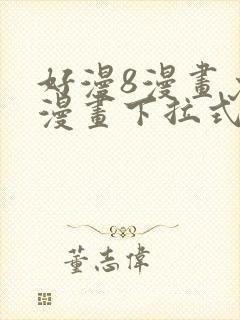 好漫8漫畫
漫畫下拉式
董志偉